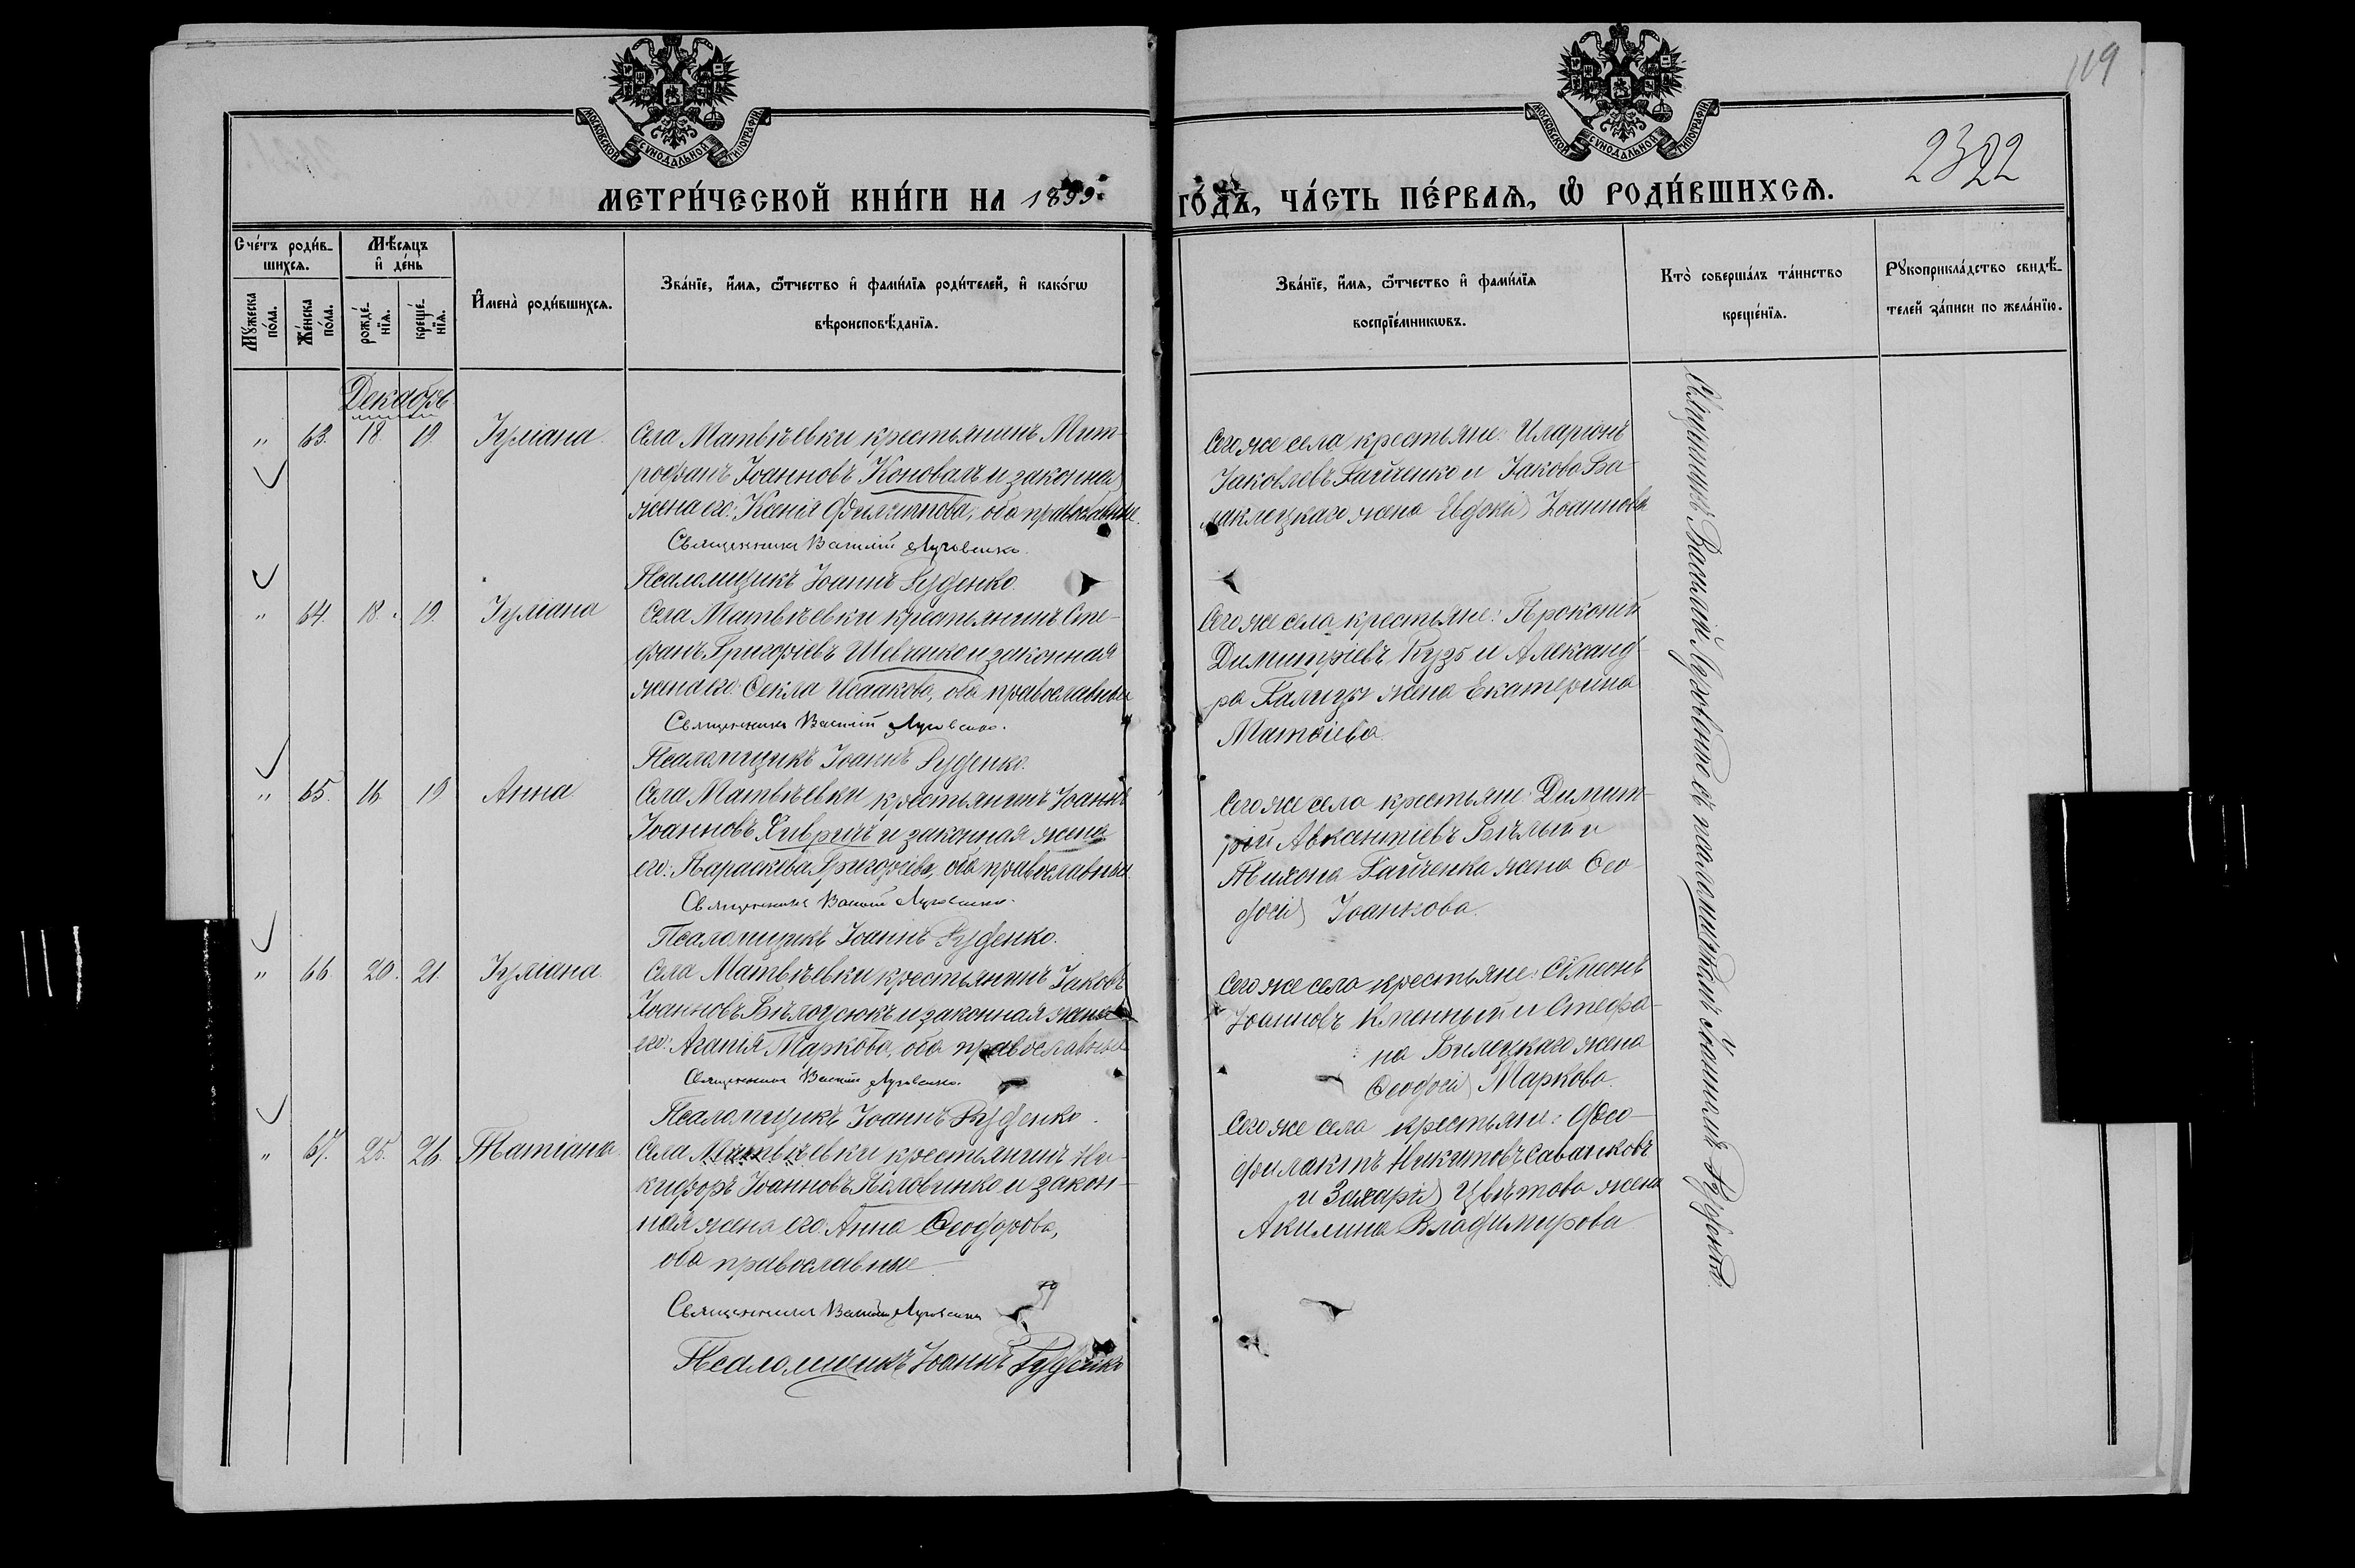 119
2322
МОСКОВСКОЙ СѴНОДАЛЬНОЙ ТИПОГРАФІИ
МОСКОВСКОЙ СѴНОДАЛЬНОЙ ТИПОГРАФІИ
МЕТРИ́ЧЕСКОЙ КНИ́ГИ НА 1899
ГО́ДЪ, ЧА́СТЬ ПЕ́РВАѦ, Ѡ РОДИ́ВШИХСѦ.
Сче́тъ роди́в-
шихсѧ.
Мꙋжеска по́ла.
Же́нска по́ла.
Мѣ́сѧцъ
и҆ де́нь
рожде́-
нїѧ.
креще́-
нїѧ.
И҆мена̀ роди́вшихсѧ.
Зва́нїе, и҆́мѧ, ѻ҆́тчество и҆ фами́лїѧ роди́телей, и҆ како́гѡ
вѣроисповѣ́данїѧ.
Зва́нїе, и҆́мѧ, ѻ҆́тчество и҆ фами́лїѧ
воспрїе́мникѡвъ.
Кто̀ соверша́лъ та́инство
креще́нїѧ.
Рꙋкоприкла́дство свидѣ́-
телей за́писи по жела́нїю.
Декабрь
„ 63. 18. 19. Іуліана.
Села Матвѣевки крестьянинъ Мит-
рофанъ Іоанновъ Коновалъ и законная
жена его: Ксенія Филиппова, оба православные.
Священникъ Василій Луговенко.
Псаломщикъ Іоаннъ Руденко.
Сего же села крестьяне: Иларіонъ
Іаковлевъ Гайченко и Іакова Ба-
лаклецкаго жена Евдокія Іоаннова
„ 64. 18. 19. Іуліана
Села Матвѣевки крестьянинъ Сте-
фанъ Григоріевъ Шевченко и законная
жена его: Ѳекла Исаакова, оба православные
Священникъ Василій Луговенко.
Псаломщикъ Іоаннъ Руденко.
Сего же села крестьяне: Прокопій
Димитріевъ Кузь и Александ-
ра жена Екатерина
Матѳіева.
„ 65. 16. 19 Анна
Села Матвѣевки крестьянинъ Іоаннъ
Іоанновъ и законная жена
его: Параскева Григоріева, оба православные
Священникъ Василій Луговенко.
Псаломщикъ Іоаннъ Руденко.
Сего же села крестьяне: Димит-
рій Авксентіевъ Бѣлый и
Тихона Гайченка жена Ѳео-
досія Іоаннова.
„ 66 20. 21. Іуліана.
Села Матвѣевки крестьянинъ Іаковъ
Іоанновъ и законная жена
его: Агапія Маркова, оба православные
Священникъ Василій Луговенко.
Псаломщикъ Іоаннъ Руденко.
Сего же села крестьяне: Сѵмеонъ
Іоанновъ и Стефа-
на Билецкаго жена
Ѳеодосія Маркова.
„ 67. 25. 26. Татіана.
Села Матвѣевки крестьянинъ Ни-
кифоръ Іоанновъ Половинко и закон-
ная жена его: Анна Ѳеодорова,
оба православные.
Священникъ Василій Луговенко
Псаломщикъ Іоаннъ Руденко
Сего же села крестьяне: Ѳео-
филактъ Никитовъ Саванковъ
и Захарія Цвѣтова жена
Акилина Владимирова
Священникъ Василій Луговенко съ псаломщикомъ Іоанномъ Руденко.